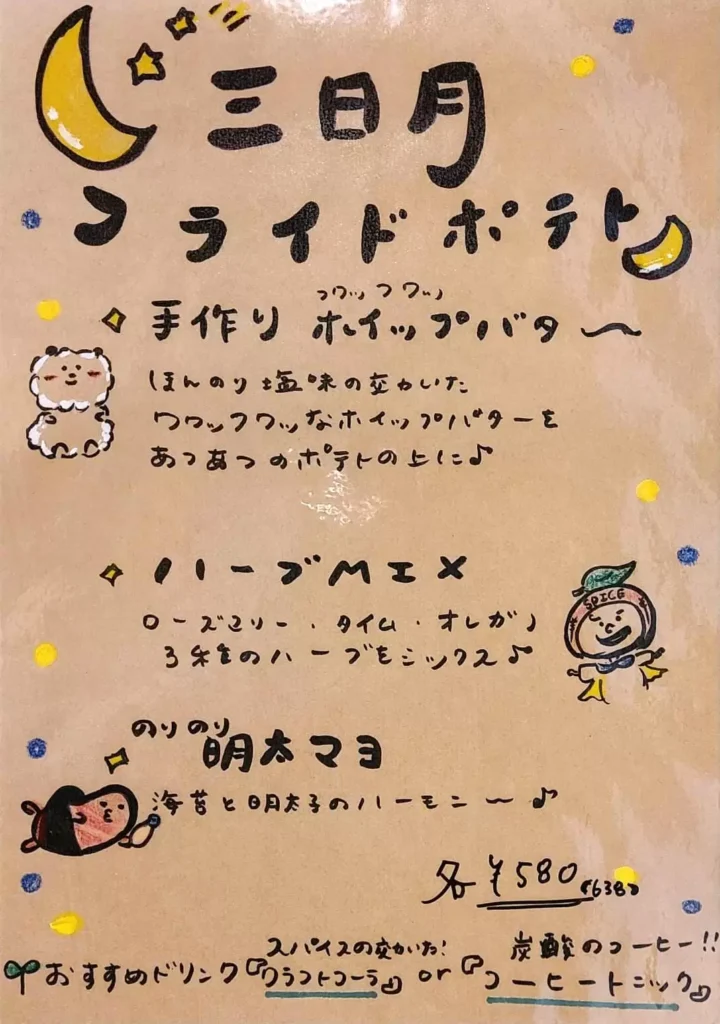 三日月
フライドポテト
フワッフワッ
手作り ホイップバター
ほんのり塩味の効いた
フワッフワッなホイップバターを
あつあつのポテトの上に♪
ハーブMIX
ローズマリー・タイム・オレガノ
3種のハーブをミックス♪
SPICE
のりのり
明太マヨ
海苔と明太子のハーモニー♪
各¥580 (638)
スパイスの効いた! 炭酸のコーヒー!!
おすすめドリンク『クラフトコーラ』or『コーヒートニック』